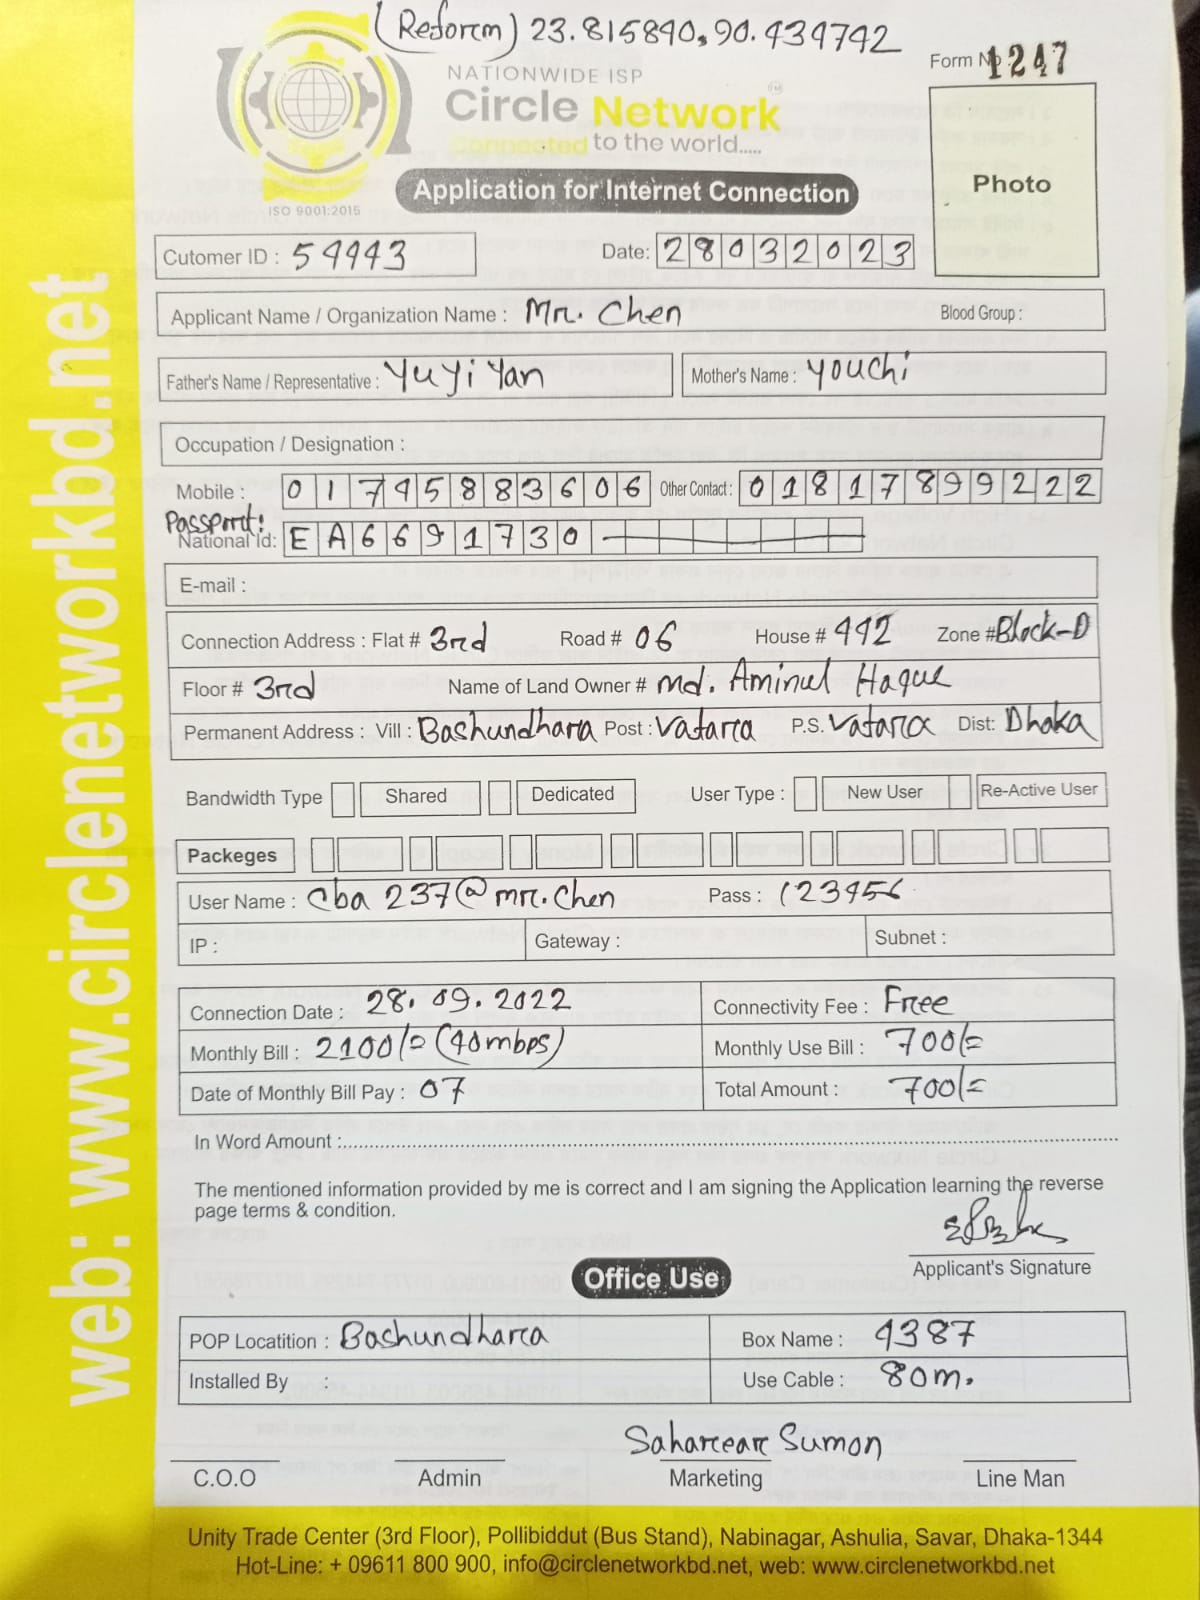 (Reform) 23.815840, 90.434742
Form No 1247
NATIONWIDE ISP
Circle Network
Connected to the world.....
ISO 9001:2015
Application for Internet Connection
Photo
Cutomer ID : 54443 Date: 28032023
Applicant Name / Organization Name : Mr. Chen Blood Group :
Father's Name / Representative : Yu Yi Yan Mother's Name : Youchi
Occupation / Designation :
Mobile : 01745883606 Other Contact : 01817899222
Passport:
National Id: EA6691730
E-mail :
Connection Address : Flat # 3rd Road # 06 House # 442 Zone # Block-D
Floor # 3rd Name of Land Owner # Md. Aminul Haque
Permanent Address : Vill : Bashundhara Post : Vatara P.S. Vatara Dist: Dhaka
Bandwidth Type Shared Dedicated User Type : New User Re-Active User
Packeges
User Name : cba 237@mr.chen Pass : 123456
IP : Gateway : Subnet :
Connection Date : 28.09.2022 Connectivity Fee : Free
Monthly Bill : 2100/= (40mbps) Monthly Use Bill : 700/=
Date of Monthly Bill Pay : 07 Total Amount : 700/=
In Word Amount :
The mentioned information provided by me is correct and I am signing the Application learning the reverse
page terms & condition.
Applicant's Signature
Office Use
POP Locatition : Bashundhara Box Name : 4387
Installed By : Use Cable : 80m.
Saharear Sumon
C.O.O Admin Marketing Line Man
Unity Trade Center (3rd Floor), Pollibiddut (Bus Stand), Nabinagar, Ashulia, Savar, Dhaka-1344
Hot-Line: + 09611 800 900, info@circlenetworkbd.net, web: www.circlenetworkbd.net
web: www.circlenetworkbd.net